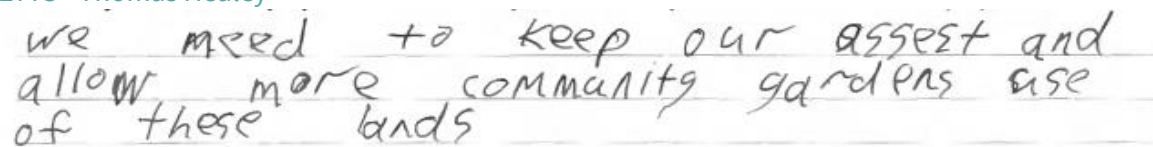 we need to keep our assest and
allow more community gardens use
of these lands